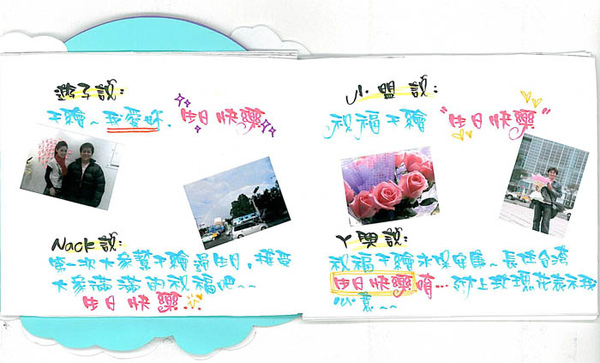 子說:
千繪~我愛妳. 生日快樂
Nack說:
第一次大家幫千繪過生日, 接受
大家滿滿的祝福吧~~
生日快樂...
小盟說:
祝福千繪 "生日快樂"
ㄚ說:
祝福千繪永保安康~長住台灣
生日快樂唷...附上玫瑰花表示我
心意~~